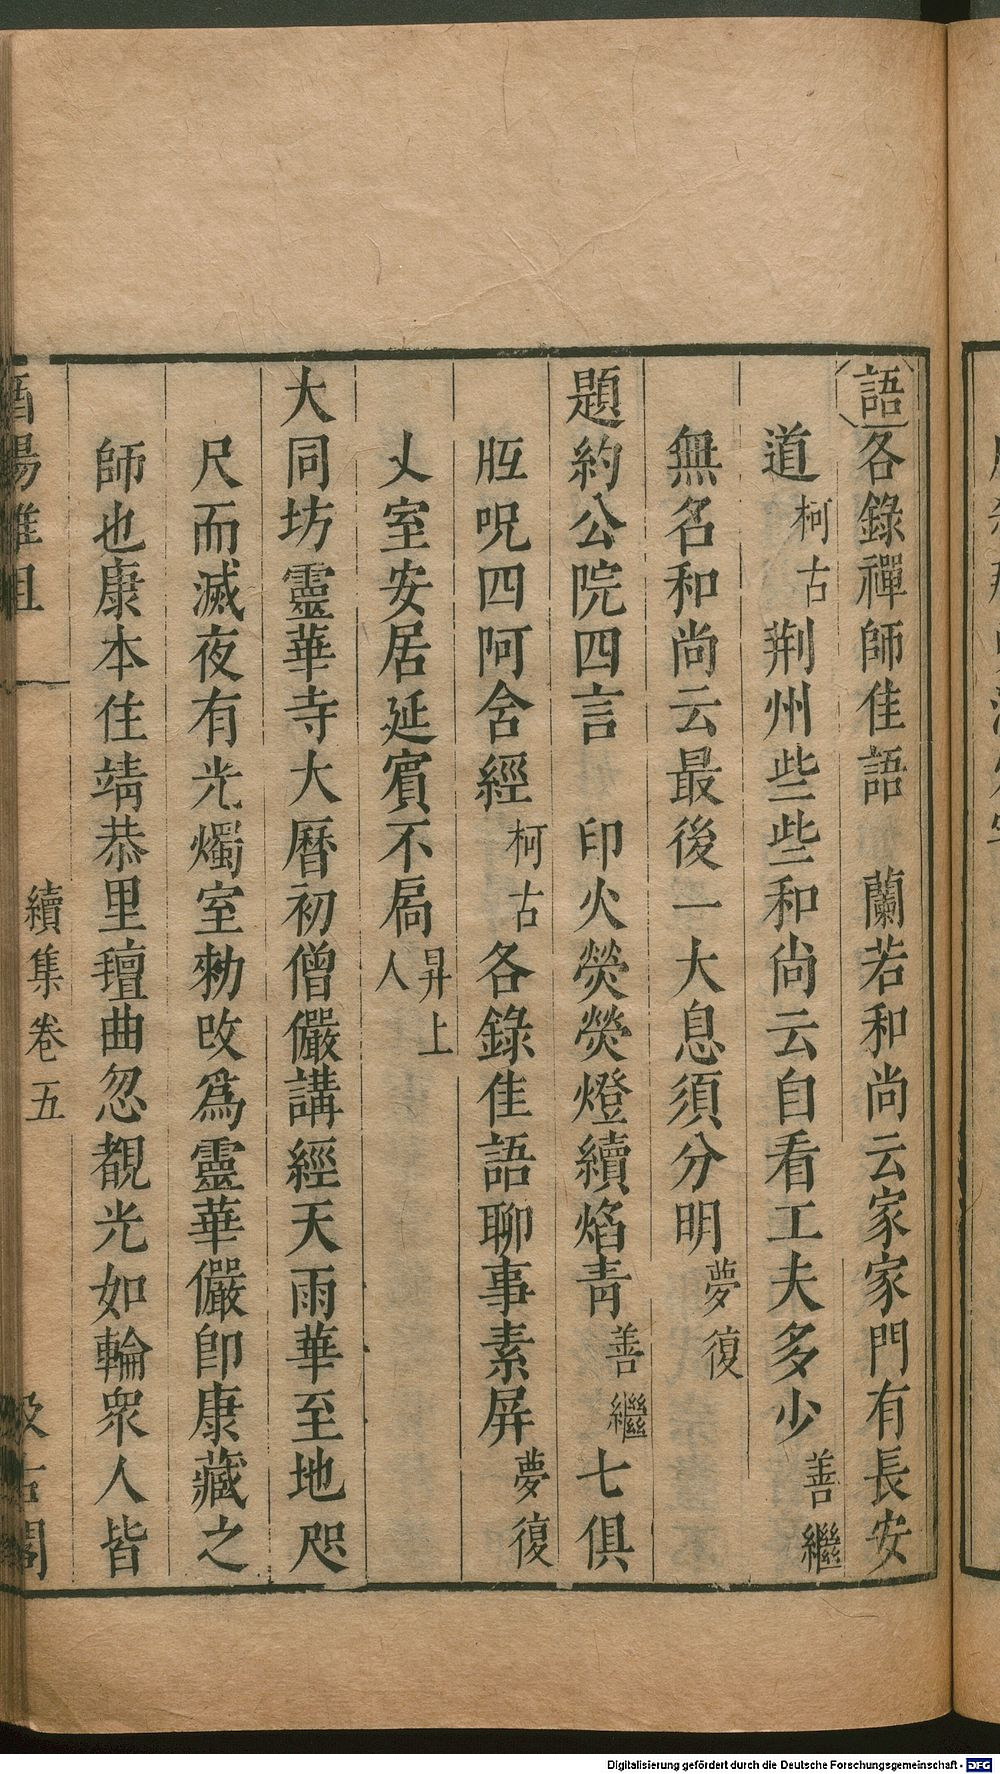 語各錄禪師佳語　蘭若和尚云家家門有長安
道柯古荆州些些和尚云自看工夫多少善繼
無名和尚云最後一大息須分明夢復
題約公院四言　印火熒熒燈續焰青善繼七俱
胝呪四阿含經柯古各錄佳語聊事素屏夢復
丈室安居延賓不扄昇上人
大同坊靈華寺大曆初僧儼講經天雨華至地咫
尺而滅夜有光燭室勑改爲靈華儼卽康藏之
師也康本住靖恭里氊曲忽覩光如輪衆人皆
酉陽雜俎　續集卷五　汲古閣
Digitalisierung gefördert durch die Deutsche Forschungsgemeinschaft - DFG